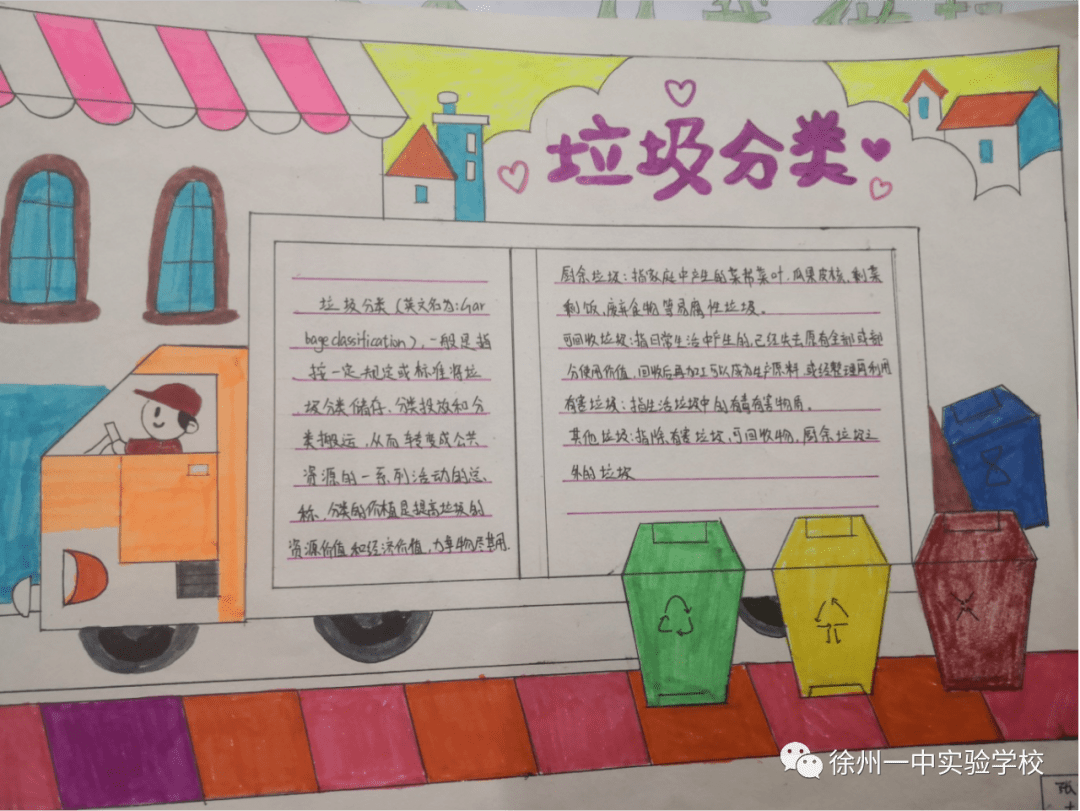 垃圾分类
垃圾分类(英文名为:Gar
bage classification),一般是指
按一定规定或标准将垃
圾分类储存、分类投放和分
类搬运,从而转变成公共
资源的一系列活动的总
称,分类的价值是提高垃圾的
资源价值和经济价值,力争物尽其用.
厨余垃圾:指家庭中产生的菜帮菜叶、瓜果皮核、剩菜
剩饭、废弃食物等易腐性垃圾。
可回收垃圾:指日常生活中产生的,已经失去原有全部或部
分使用价值,回收后再加工可以成为生产原料或经整理再利用
有害垃圾:指生活垃圾中的有毒有害物质。
其他垃圾:指除有害垃圾、可回收物、厨余垃圾之
外的垃圾
徐州一中实验学校